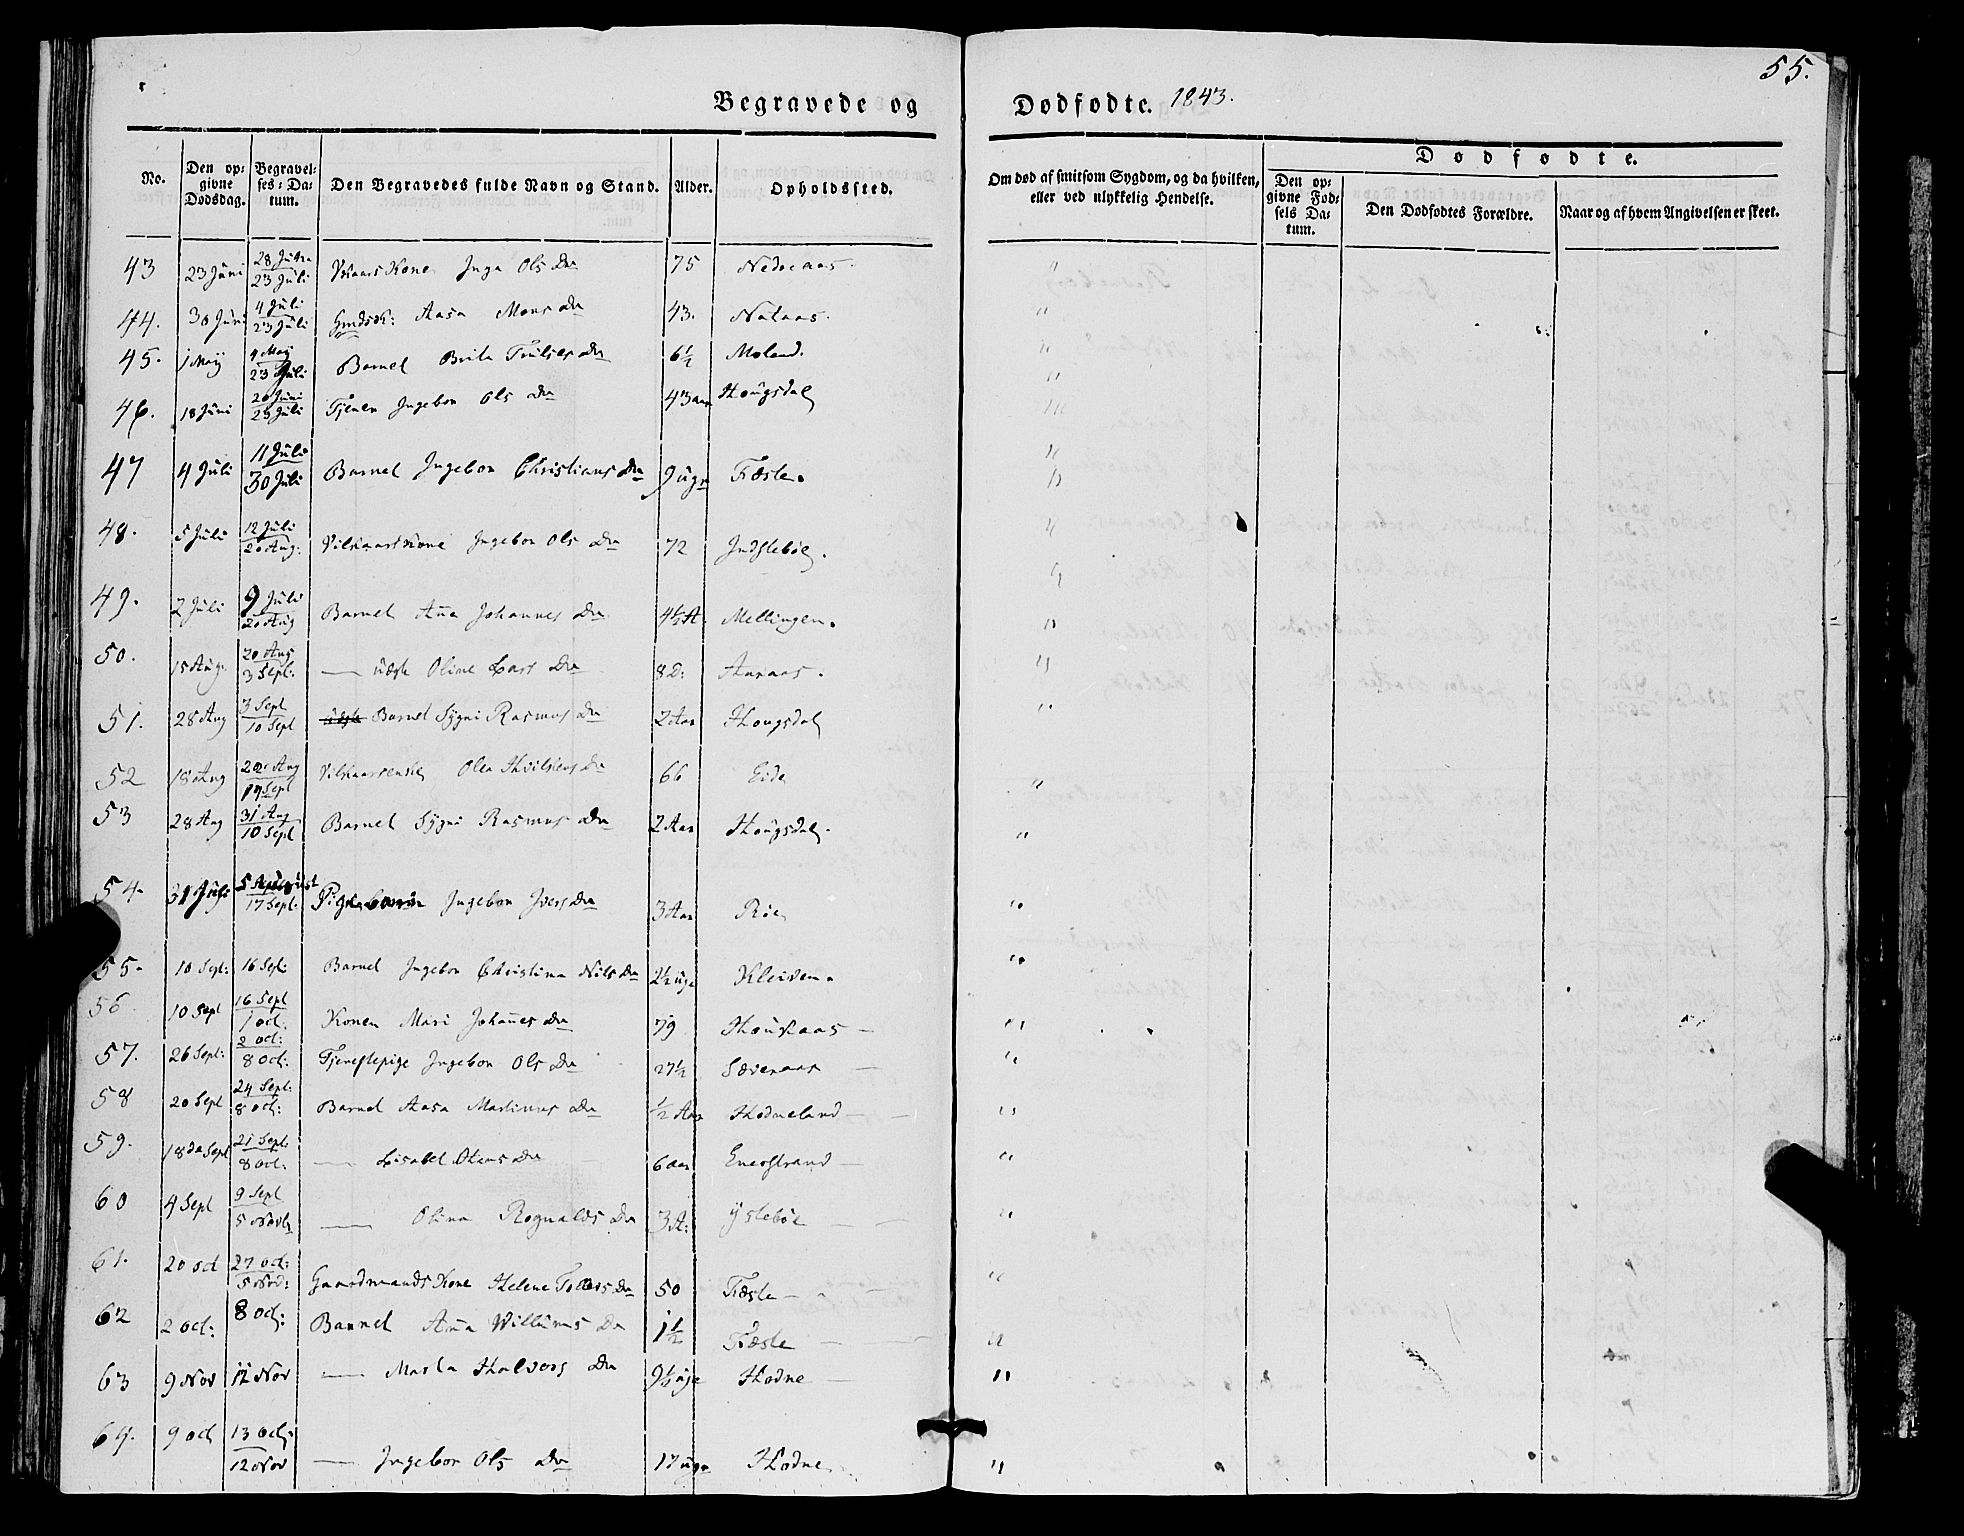 55.
Begravede og Dødfødte. 1843.
No. Den opgivne Dødsdag. Begravelses-Datum. Den Begravedes fulde Navn og Stand. Alder. Opholdssted. Om død af smitsom Sygdom, og da hvilken, eller ved ulykkelig Hendelse. Dødfødte.
Den opgivne Fødsels Datum. Den Dødfødtes Forældre. Naar og af hvem Angivelsen er skeet.
43 23 Juni 28 23 Juli Kone Inga Ols Dr 75 "
44. 30 Juni 4 Juli 23 Juli Aasa Mons Dr 43. Nataas. "
45. 1 Maij 4 Maij 23 Juli Barnet Brita Dr 6½ Moland. "
46. 18 Juni 20 Juni 23 Juli Ingebor Ols Dr 43 aar Hougsdal "
47 4 Juli 11 Juli 30 Juli Barnet Ingebor Christians Dr 9 ugr Fæste. "
48. 5 Juli 12 Juli 20 Aug. Ingebor Ols Dr 72 "
49. 2 Juli 9 Juli 20 Aug Barnet Aña Johannes Dr 4½ A. Mellingen. "
50. 15 Aug. 20 Aug 3 Sept. — Oline Lars Dr 8 D. "
51. 28 Aug 3 Sept 10 Sept Barnet Sygni Rasmus Dr 2 Aar Hougsdal "
52 18 Aug Aug Sept Dr 66 Eide "
53 28 Aug 31 Aug 10 Sept Barnet Sygni Rasmus Dr 2 Aar Hougsdal. "
54. 31 Juli 5 August 17 Sept. Ingebor Ivers Dr 3 Aar "
55. 10 Sept: 16 Sept: Barnet Ingebor Christina Nils Dr 2½ uge "
56. 10 Sept 16 Sept 1 Oct. Konen Mari Johañes Dr 79 — "
57. 26 Sept: 2 Oct: 8 Oct: Tjenestepige Ingebor Ols Dr 27½ — "
58 20 Sept 24 Sept: 8 Oct: Barnet Aasa Martinus Dr ½ Aar Hodneland — "
59. 18de Sept 21 Sept: 8 Oct: — Lisabet Hans Dr 6 aar — "
60 4 Sept 9 Sept 5 Novb — Olina Rognalds Dr 3 A: Ystebøe — "
61. 20 Oct 27 Oct: 5 Nov: Gaardmands Kone Helene Dr 50 Fæste — "
62 2 Oct: 8 Oct: Barnet Aña Willums Dr 1½ Fæste — "
63 9 Nov 12 Nov — Marta Halvors Dr 9½ uge Hodne — "
64. 9 Oct 13 Oct. 12 Nov — Ingebor Ols Dr 17 ugr Hodne "